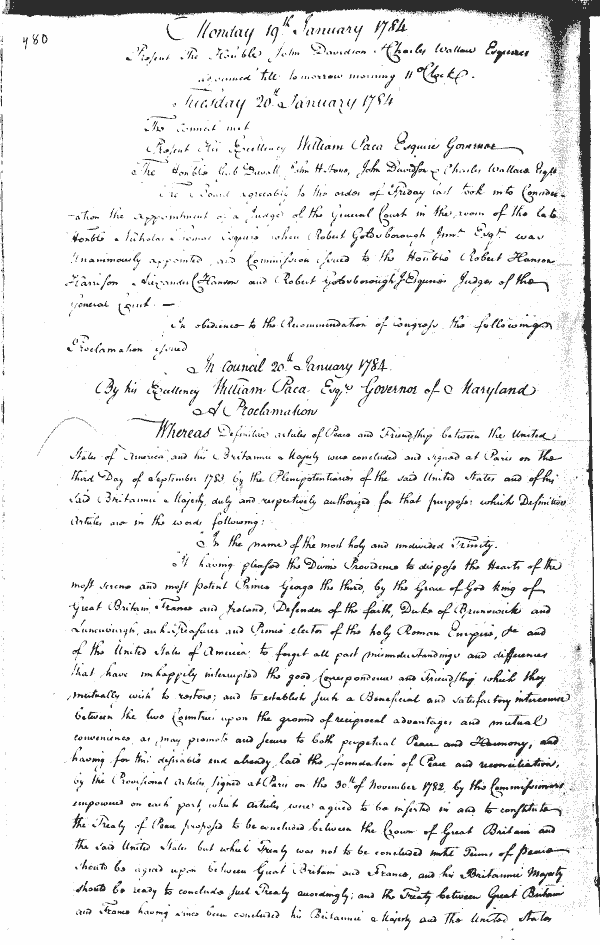 480
Monday 19th January 1784
Present The Honble John Davidson & Charles Wallace Esquires
adjourned till tomorrow morning 11 oClock.
Tuesday 20th January 1784
The Council met
Present His Excellency William Paca Esquire Governor
The Honble Gabl Duvall, John H Stone, John Davidson & Charles Wallace Esqrs
The Board agreeably to the order of Friday last took into Consider-
-ation the appointment of a Judge of the General Court in the room of the late
Honble Nicholas Thomas Esquire when Robert Goldsborough Junr Esqr was
Unanimously appointed, and Commission issued to the Honble Robert Hanson
Harrison Alexander C Hanson and Robert Goldsborough Jr Esquires Judges of the
General Court —
In obedience to the Recommendation of Congress the following
Proclamation issued
In Council 20th January 1784
By his Excellency William Paca Esqr Governor of Maryland
A Proclamation
Whereas Definitive articles of Peace and Friendship between the United
States of America and his Britannic Majesty were concluded and signed at Paris on the
third Day of September 1783 by the Plenipotentiaries of the said United States and of his
Said Britannic Majesty, duly and respectively authorized for that purpose: which Definitive
Articles are in the words following:
In the name of the most holy and undivided Trinity.
It having pleased the Divine Providence to dispose the Hearts of the
most serene and most potent Prince George the third, by the Grace of God King of
Great Britain, France and Ireland, Defender of the faith, Duke of Brunswick and
Lunenburgh, arch-Treasurer and Prince elector of the holy Roman Empire, &c and
of the United States of America to forget all past misunderstandings and differences
that have unhappily interrupted the good Correspondence and Friendship which they
mutually wish to restore; and to establish such a Beneficial and satisfactory intercourse
between the two Countries upon the ground of reciprocal advantages and mutual
convenience as may promote and secure to both perpetual Peace and Harmony, and
having for this desirable end already laid the foundation of Peace and reconciliation,
by the Provisional Articles, signed at Paris on the 30th of November 1782, by the Commissioners
empowered on each part, which articles were agreed to be inserted in and to constitute
the Treaty of Peace proposed to be concluded between the Crown of Great Britain and
the said United States but which Treaty was not to be concluded until Terms of Peace
should be agreed upon between Great Britain and France, and his Britannic Majesty
should be ready to conclude such Treaty accordingly; and the Treaty between Great Britain
and France having since been concluded his Britannic Majesty and the United States